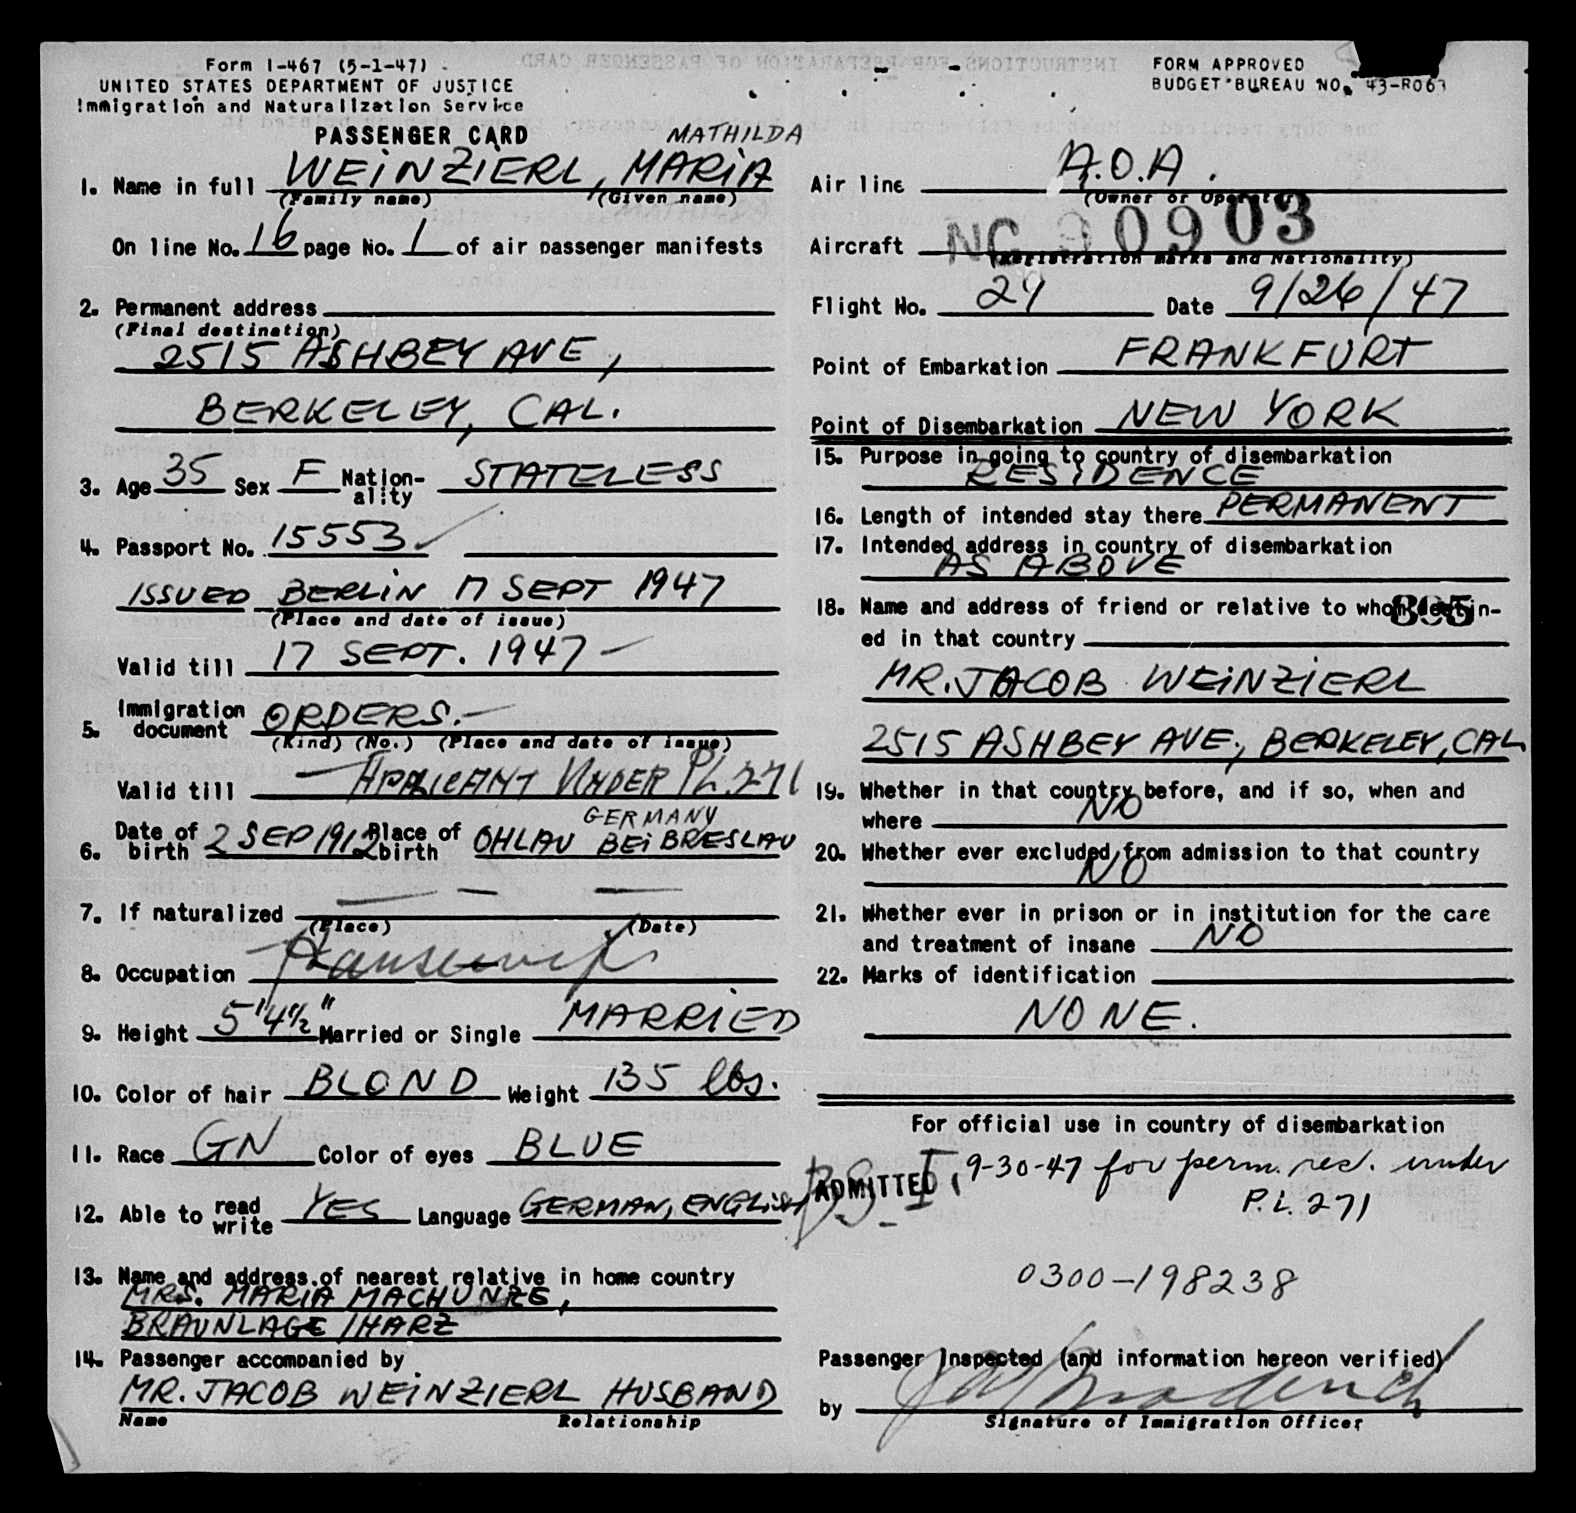 Form I-467 (5-1-47)
UNITED STATES DEPARTMENT OF JUSTICE
Immigration and Naturalization Service
PASSENGER CARD
MATHILDA
1. Name in full WEINZIERL, MARIA
(Family name) (Given name)
On line No. 16 page No. 1 of air passenger manifests
2. Permanent address
(Final destination)
2515 ASHBEY AVE,
BERKELEY, CAL.
3. Age 35 Sex F Nation-ality STATELESS
4. Passport No. 15553
ISSUED BERLIN 17 SEPT 1947
(Place and date of issue)
Valid till 17 SEPT. 1947
5. Immigration document ORDERS.
(Kind) (No.) (Place and date of issue)
Valid till APPLICANT UNDER PL. 271
GERMANY
6. Date of birth 2 SEP 1912 Place of birth OHLAU BEI BRESLAU
7. If naturalized
(Place) (Date)
8. Occupation Hausewife
9. Height 5"4½" Married or Single MARRIED
10. Color of hair BLOND Weight 135 lbs.
11. Race GN Color of eyes BLUE
12. Able to read write YES Language GERMAN, ENGLISH
13. Name and address of nearest relative in home country
MRS. MARIA MACHUNZE,
BRAUNLAGE / HARZ
14. Passenger accompanied by
MR. JACOB WEINZIERL HUSBAND
Name Relationship
FORM APPROVED
BUDGET BUREAU NO. 43-R063
Air line A.O.A.
(Owner or Operator)
Aircraft NC 90903
(Registration marks and Nationality)
Flight No. 29 Date 9/26/47
Point of Embarkation FRANKFURT
Point of Disembarkation NEW YORK
15. Purpose in going to country of disembarkation
RESIDENCE
16. Length of intended stay there PERMANENT
17. Intended address in country of disembarkation
AS ABOVE
18. Name and address of friend or relative to whom destin-
895
ed in that country
MR. JACOB WEINZIERL
2515 ASHBEY AVE., BERKELEY, CAL
19. Whether in that country before, and if so, when and
where NO
20. Whether ever excluded from admission to that country
NO
21. Whether ever in prison or in institution for the care
and treatment of insane NO
22. Marks of identification
NONE.
For official use in country of disembarkation
ADMITTED 9-30-47 for perm. res. under
P.L. 271
0300-198238
Passenger Inspected (and information hereon verified)
by
Signature of Immigration Officer